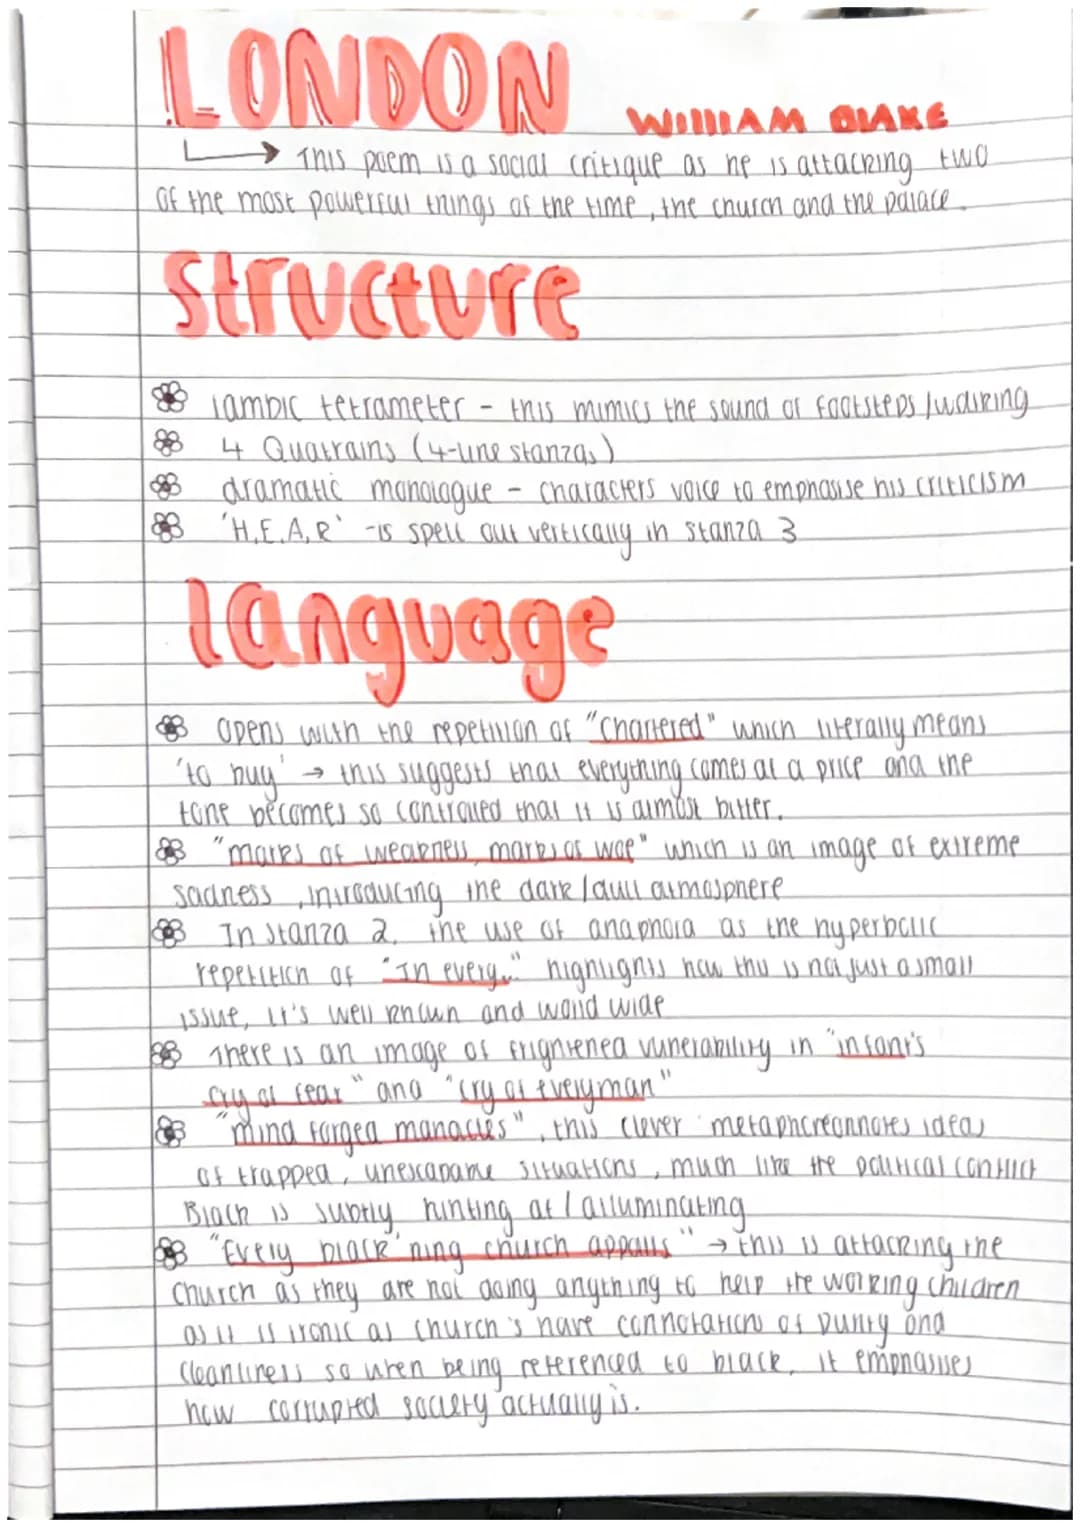 LONDON WILLIAM BLAKE
→ This poem is a social critique as he is attacking two
of the most powerful things of the time, the church and the palace.
Structure
iambic tetrameter - this mimics the sound of footsteps/walking
4 Quatrains (4-line stanzas)
dramatic monologue - characters voice to emphasise his criticism
'H,E,A,R' - is spell out vertically in stanza 3
language
opens with the repetition of "Chartered" which literally means
'to buy' → this suggests that everything comes at a price and the
tone becomes so controlled that it is almost bitter.
"marks of weakness, marks of woe" which is an image of extreme
sadness, introducing the dark/dull atmosphere
In stanza 2, the use of anaphora as the hyperbolic
repetition of "In every..." highlights how this is not just a small
issue, it's well known and world wide
There is an image of frightened vunerability in "infant's
cry of fear" and "cry of everyman"
"mind forged manacles", this clever metaphoreonnotes ideas
of trapped, unescapable situations, much like the political conflict
Black is subtly hinting at / alluminating
"Every black'ning church appalls" → this is attacking the
church as they are not doing anything to help the working children
as it is ironic as church's have connotations of purity and
cleanliness so when being referenced to black, it emphasises
how corrupted society actually is.